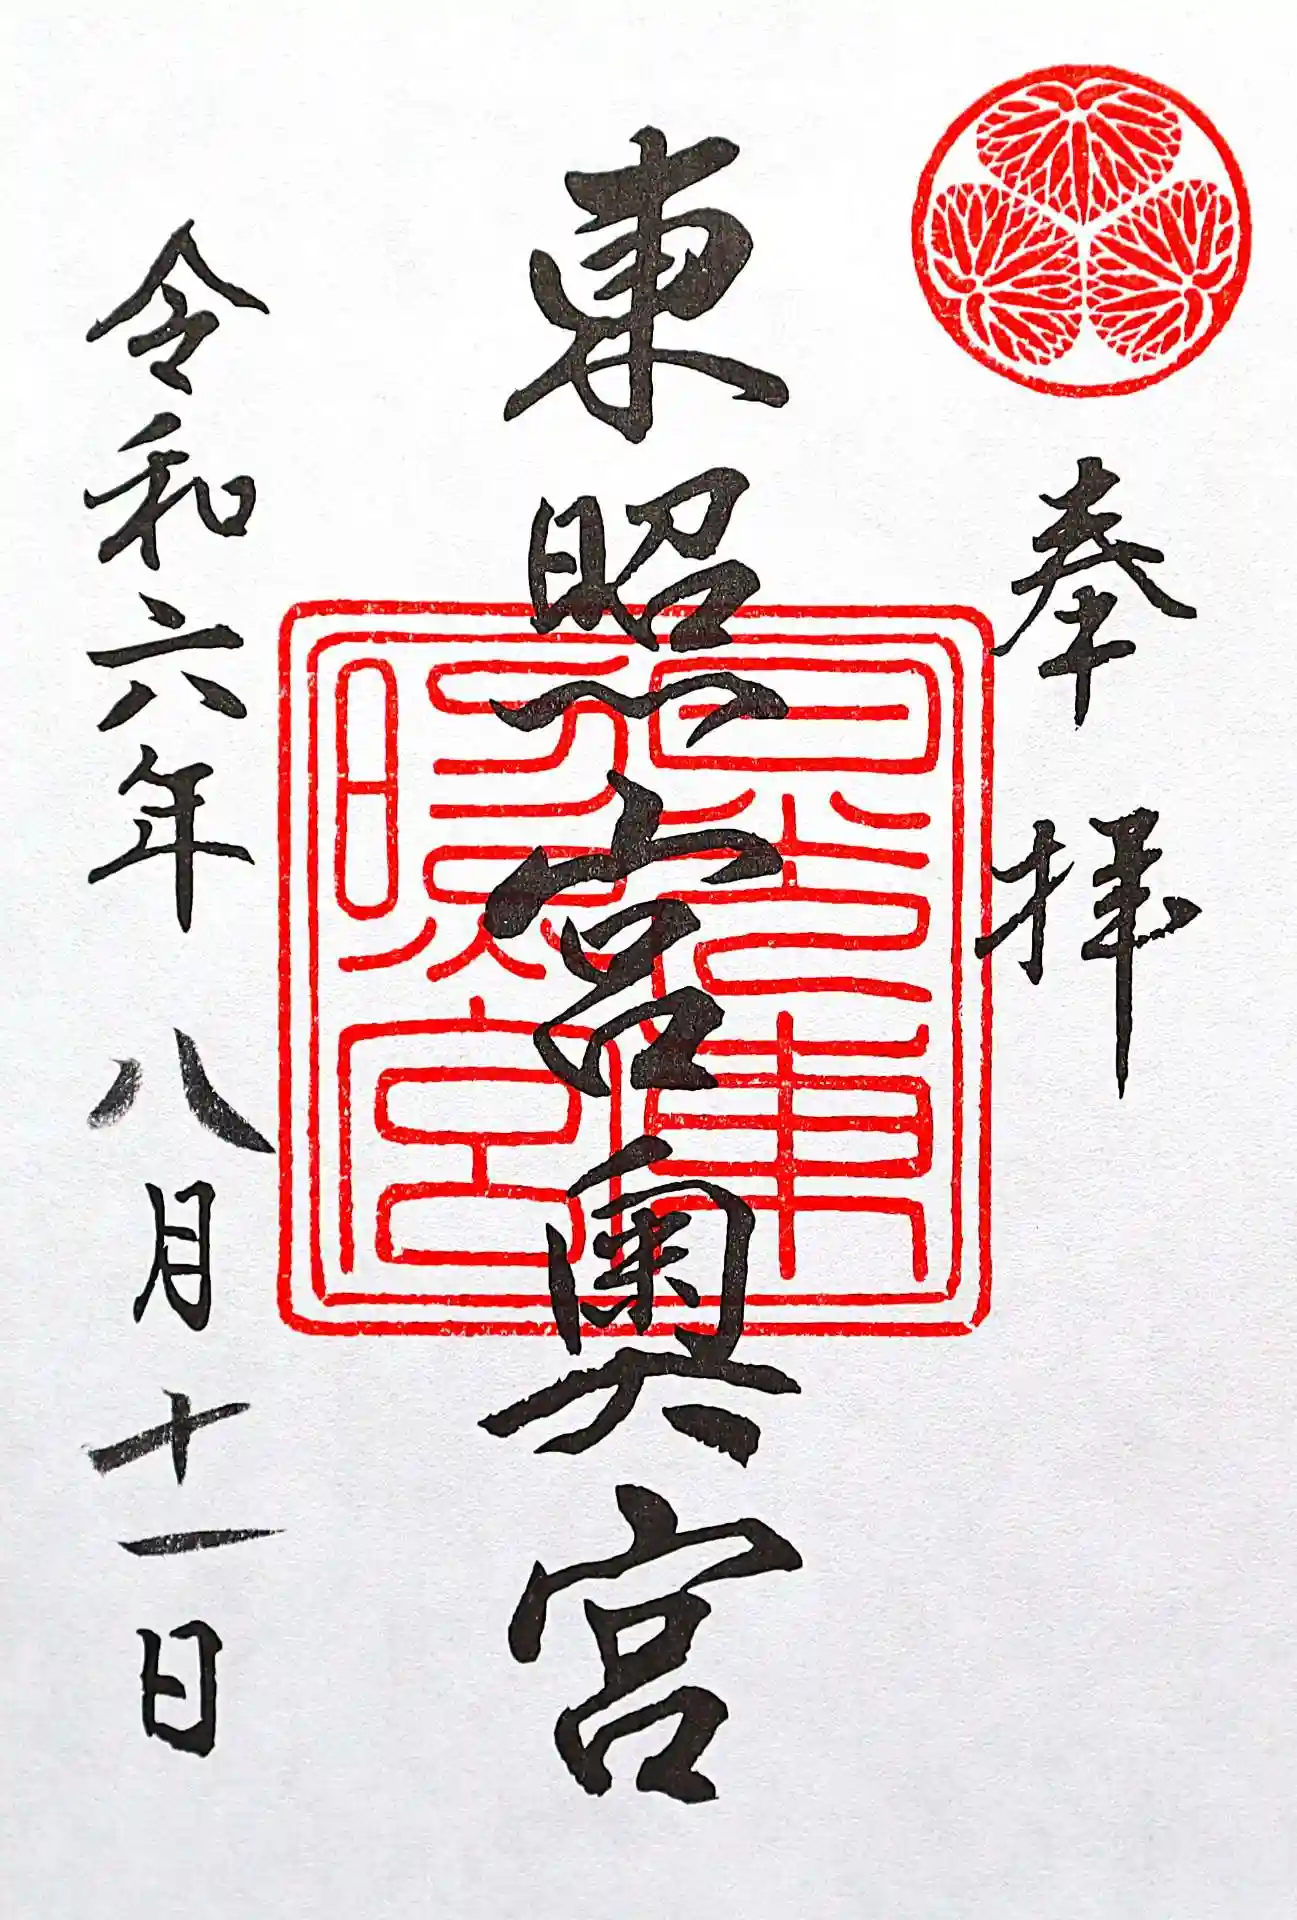 奉拝
東照宮奥宮
令和六年八月十一日